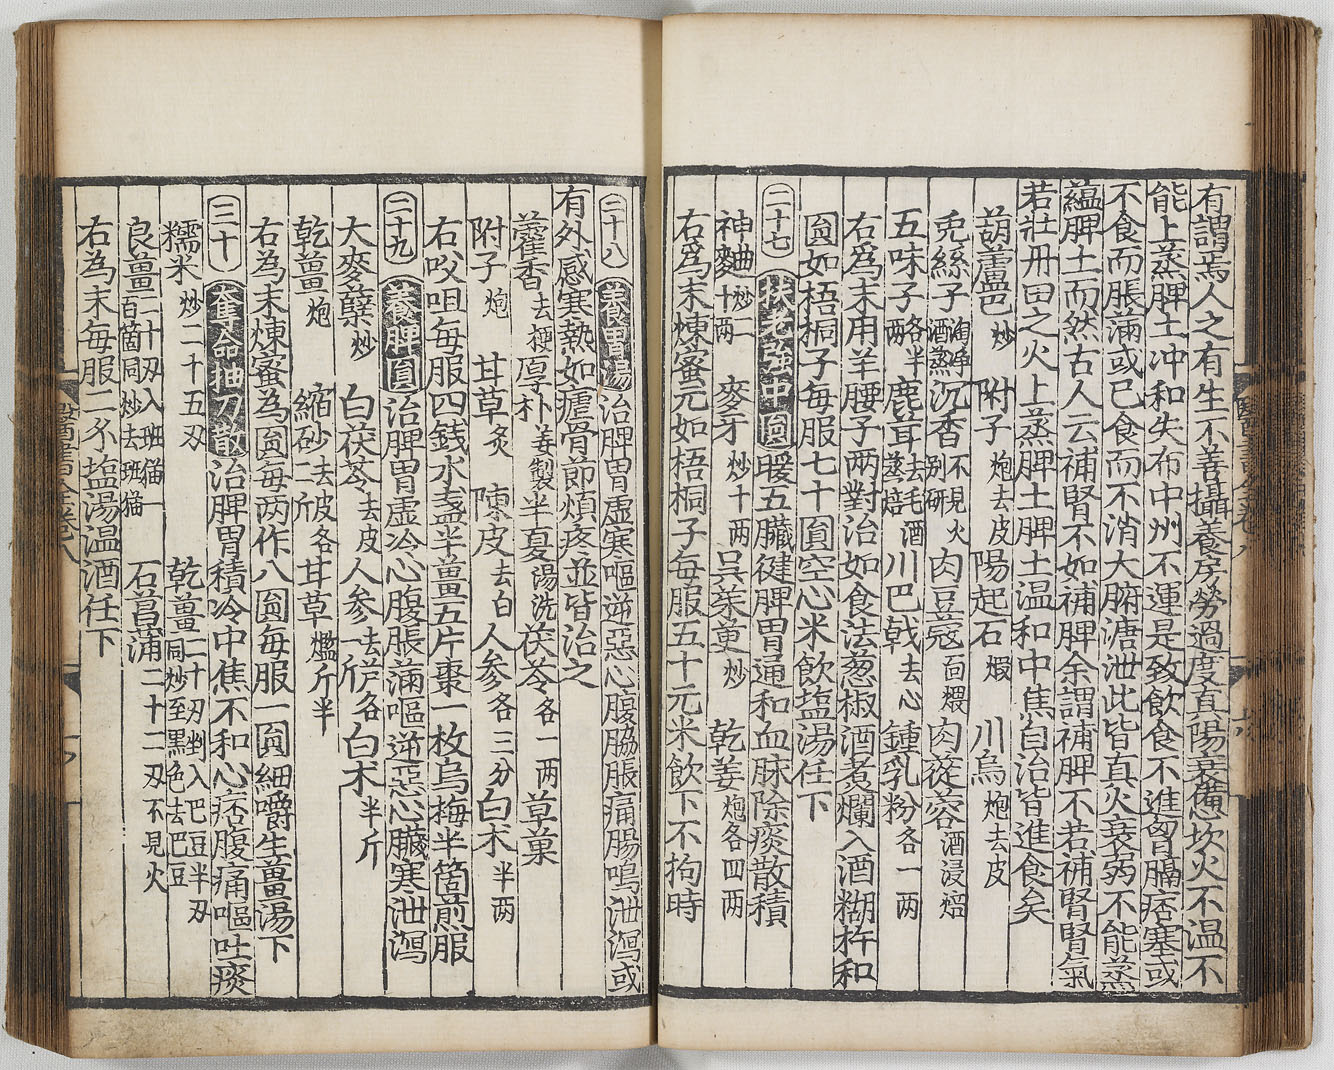 有謂焉人之有生不善攝養房勞過度真陽衰憊坎火不溫不
能上蒸脾土冲和失布中州不運是致飲食不進胷膈痞塞或
不食而脹滿或已食而不消大腑溏泄此皆真火衰弱不能蒸
蘊脾土而然古人云補腎不如補脾余謂補脾不若補腎腎氣
若壯丹田之火上蒸脾土脾土温和中焦自治皆進食矣
葫蘆巴炒 附子炮去皮 陽起石煆 川烏炮去皮
兎絲子淘净酒蒸 沉香不見火别研 肉豆蔻面煨 肉蓯蓉酒浸焙
五味子各半两 鹿茸去毛酒蒸焙 川巴戟去心 鍾乳粉各一两
右爲末用羊腰子两對治如食法葱椒酒煮爛入酒糊杵和
圓如梧桐子每服七十圓空心米飲塩湯任下
二十七 扶老強中圓 暖五臟健脾胃通和血脉除痰散積
神麯炒一十两 麥牙炒十两 呉茱萸炒 乾姜炮各四两
右爲末煉蜜元如梧桐子每服五十元米飲下不拘時
二十八 養胃湯 治脾胃虚寒嘔逆惡心腹脇脹痛腸鳴泄瀉或
有外感寒熱如瘧骨節煩疼並皆治之
藿香去梗 厚朴姜製 半夏湯洗 茯苓各一两 草菓
附子炮 甘草炙 陳皮去白 人參各三分 白术半两
右㕮咀每服四錢水盞半薑五片棗一枚烏梅半箇煎服
二十九 養脾圓 治脾胃虚冷心腹脹滿嘔逆惡心臟寒泄瀉
大麥櫱炒 白茯苓去皮 人參去芦各一斤 白术半斤
乾薑炮 縮砂去皮各二斤 甘草爁斤半
右為末煉蜜為圓每两作八圓每服一圓細嚼生薑湯下
三十 奪命抽刀散 治脾胃積冷中焦不和心痞腹痛嘔吐痰
糯米炒二十五刄 乾薑二十刄剉入巴豆半刄同炒至黒色去巴豆
良薑二十刄入班猫一百箇同炒去班猫 石菖蒲二十二刄不見火
右為末每服二不塩湯温酒任下